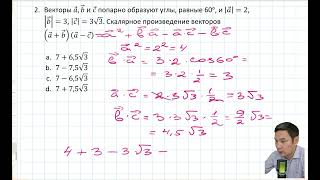 2. Векторы a⃗, b⃗ и c⃗ попарно образуют углы, равные 60°, и |a⃗| = 2,
|b⃗| = 3, |c⃗| = 3√3. Скалярное произведение векторов
(a⃗ + b⃗)(a⃗ − c⃗) = a⃗² + b⃗a⃗ − a⃗·c⃗ − b⃗c⃗
a⃗² = 2² = 4
a. 7 + 6,5√3
b. 7 − 7,5√3
c. 7 − 6,5√3
d. 7 + 7,5√3
b⃗·a⃗ = 3·2·cos60° =
= 3·2·1/2 = 3
a⃗·c⃗ = 2·3√3·1/2 = 3√3
b⃗·c⃗ = 3·3√3·1/2 = 9/2√3 =
= 4,5√3
4 + 3 − 3√3 −